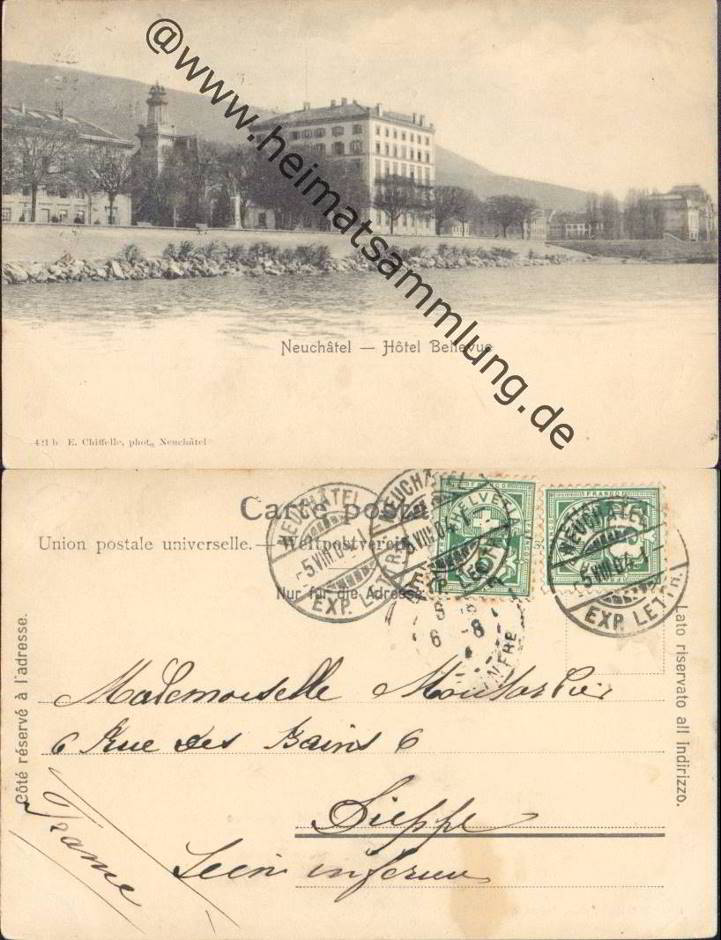 @www.heimatsammlung.de
Neuchâtel — Hôtel Bellevue
421 b E. Chiffelle, phot., Neuchâtel
Carte postale
Union postale universelle. — Weltpostverein
Nur für die Adresse
NEUCHÂTEL
-5.VIII.04-1
EXP. LETTR.
NEUCHÂTEL
5.VIII.04-1
EXP. LETTR.
HELVETIA
FRANCO
NEUCHÂTEL
-5.VIII.04-
EXP. LETTR.
6 -8
INFRE
Côté réservé à l'adresse.
Lato riservato all indirizzo.
Mademoiselle
6 Rue des Bains 6
Dieppe
Seine inférieure